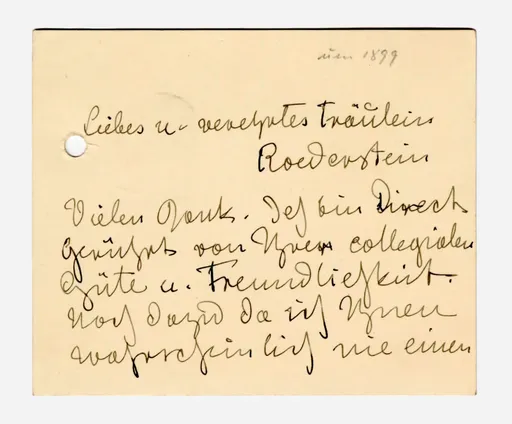 1899
Liebes u. verehrtes Fräulein
Roederstein
Vielen Dank. Ich bin Direct
gerührt von Ihrer collegialen
Güte u. Freundlichkeit.
Noch dazu da ich Ihnen
wahrscheinlich nie einen